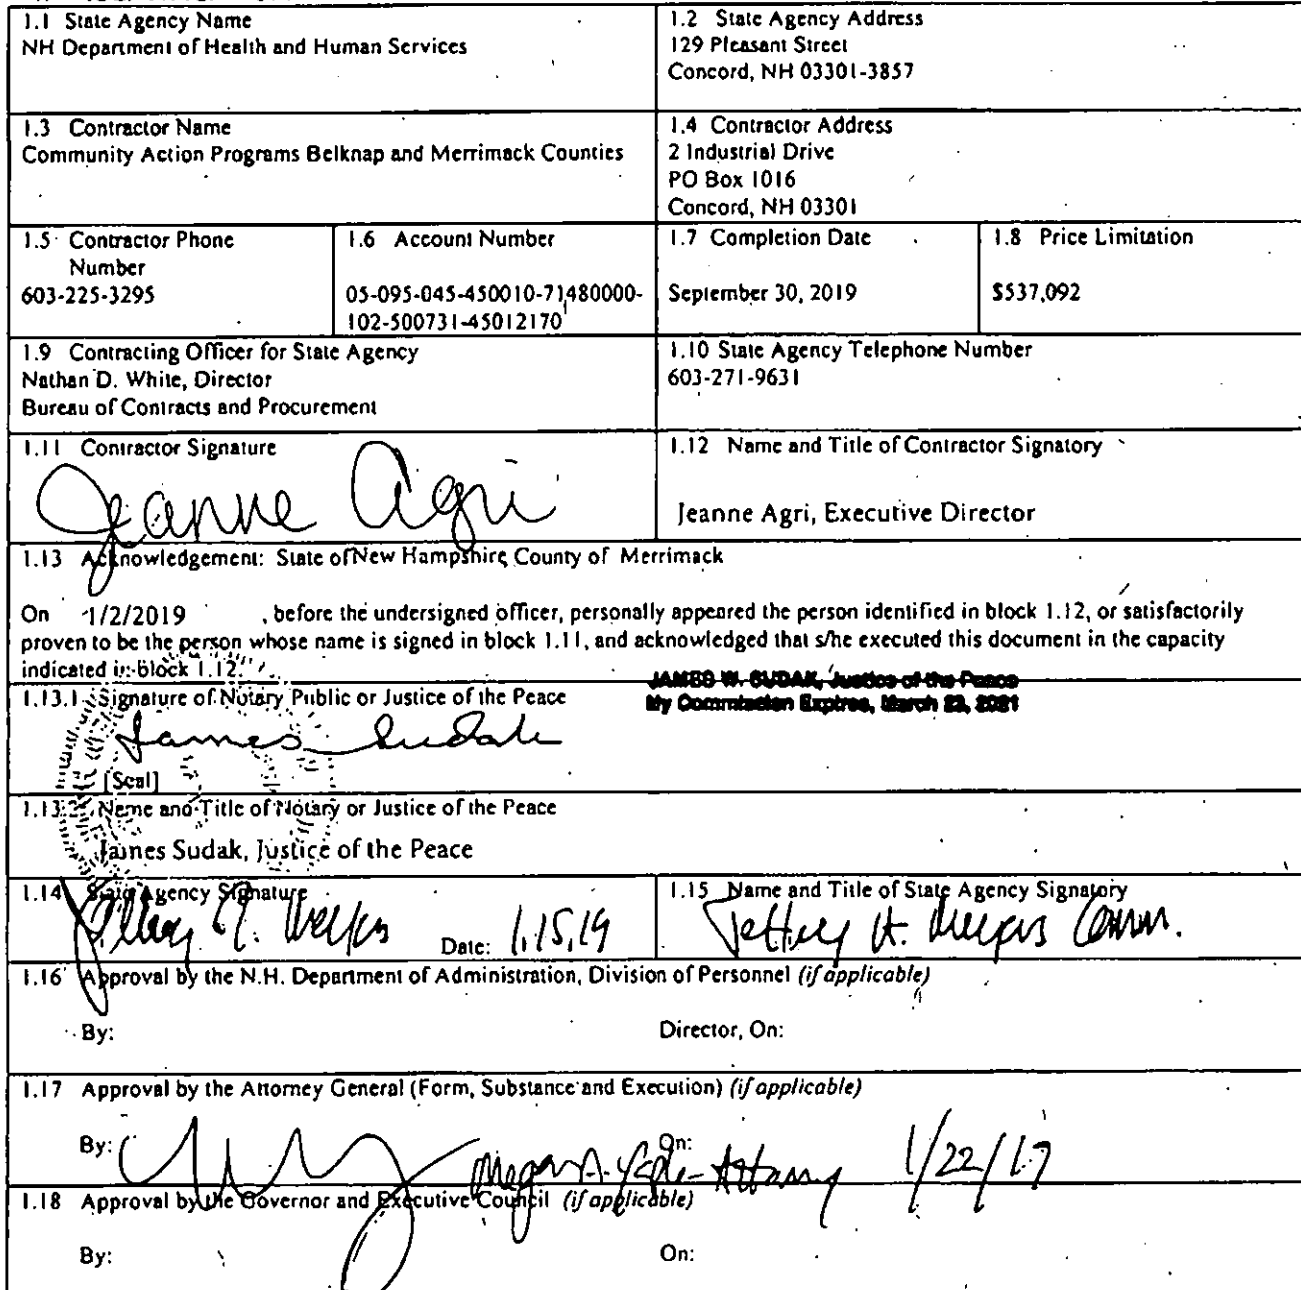 1.1 State Agency Name
NH Department of Health and Human Services
1.2 State Agency Address
129 Pleasant Street
Concord, NH 03301-3857
1.3 Contractor Name
Community Action Programs Belknap and Merrimack Counties
1.4 Contractor Address
2 Industrial Drive
PO Box 1016
Concord, NH 03301
1.5 Contractor Phone
Number
603-225-3295
1.6 Account Number
05-095-045-450010-71480000-
102-500731-45012170
1.7 Completion Date
September 30, 2019
1.8 Price Limitation
$537,092
1.9 Contracting Officer for State Agency
Nathan D. White, Director
Bureau of Contracts and Procurement
1.10 State Agency Telephone Number
603-271-9631
1.11 Contractor Signature
Jeanne Agri
1.12 Name and Title of Contractor Signatory
Jeanne Agri, Executive Director
1.13 Acknowledgement: State of New Hampshire County of Merrimack
On 1/2/2019 , before the undersigned officer, personally appeared the person identified in block 1.12, or satisfactorily
proven to be the person whose name is signed in block 1.11, and acknowledged that s/he executed this document in the capacity
indicated in block 1.12.
JAMES W. SUDAK, Justice of the Peace
My Commission Expires, March 23, 2021
1.13.1 Signature of Notary Public or Justice of the Peace
James Sudak
[Seal]
1.13.2 Name and Title of Notary or Justice of the Peace
James Sudak, Justice of the Peace
1.14 State Agency Signature
Date: 1.15.19
1.15 Name and Title of State Agency Signatory
Jeffrey A. Meyers Comm.
1.16 Approval by the N.H. Department of Administration, Division of Personnel (if applicable)
By:
Director, On:
1.17 Approval by the Attorney General (Form, Substance and Execution) (if applicable)
By:
On:
Megan A. Attorney 1/22/19
1.18 Approval by the Governor and Executive Council (if applicable)
By:
On: